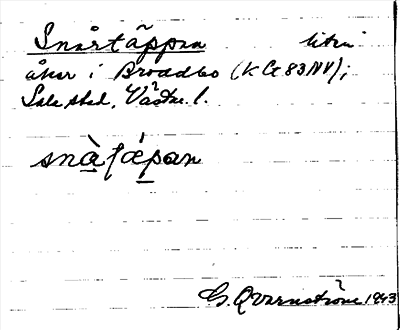 Snårtäppan liten
åker i Broddbo (K Ct 83 NV);
Sala stad, Västm. l.
snàṭǽpan
G. Qvarnström 1943